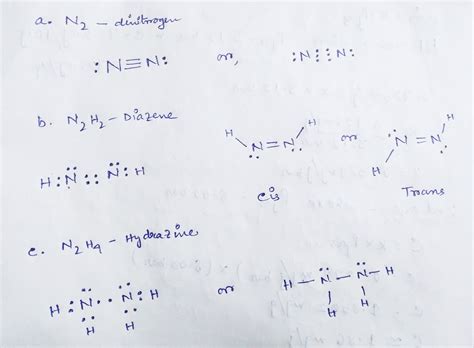 a. N₂ – dinitrogen
:N≡N: or, :N⋮⋮N:
b. N₂H₂ – Diazene
H H
N=N or N=N
H H
H:N::N:H
cis Trans
c. N₂H₄ – Hydrazine
H:N:N:H or H–N–N–H
H H H H